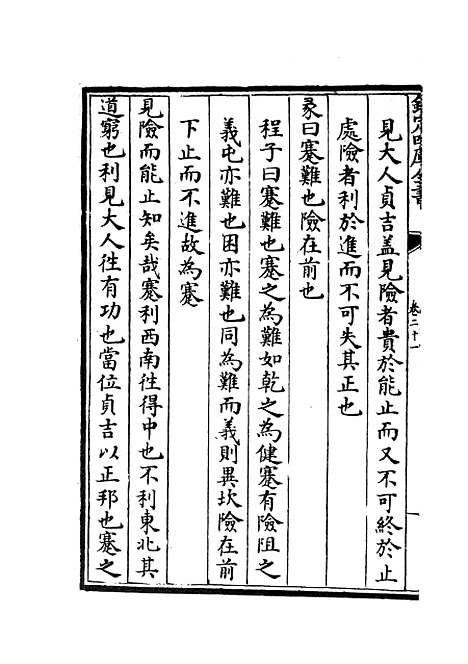 欽定四庫全書
卷二十一
見大人貞吉盖見險者貴於能止而又不可終於止
處險者利於進而不可失其正也
彖曰蹇難也險在前也
程子曰蹇難也蹇之為難如乾之為健蹇有險阻之
義屯亦難也困亦難也同為難而義則異坎險在前
下止而不進故為蹇
見險而能止知矣哉蹇利西南往得中也不利東北其
道窮也利見大人往有功也當位貞吉以正邦也蹇之